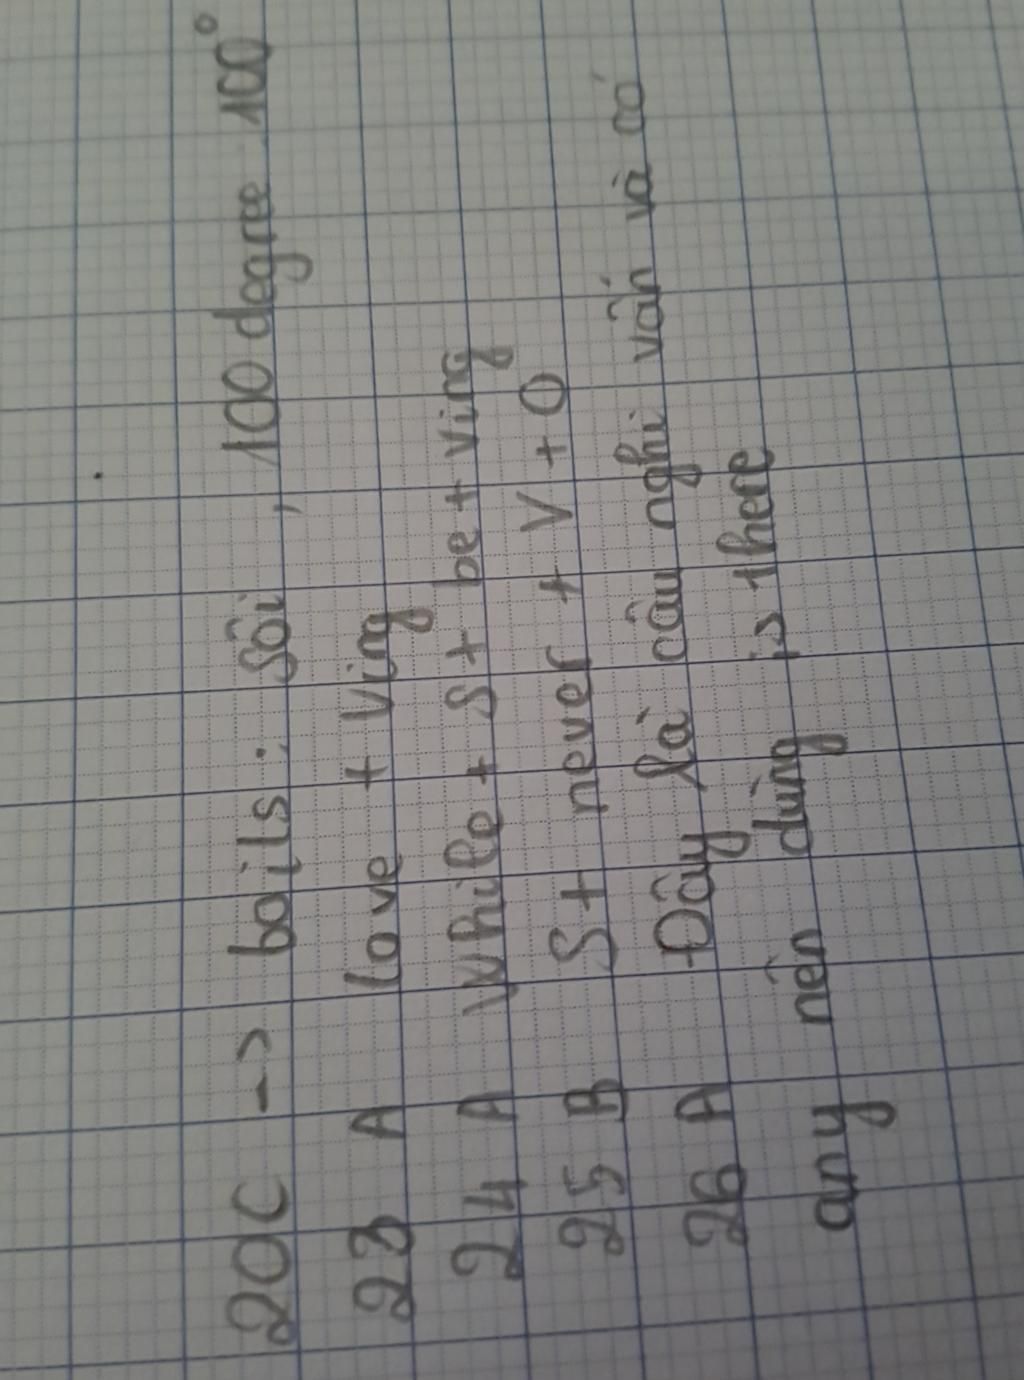 20C -> boils: Sôi, 100 degree 100°
23 A love + Ving
24 A While + S + be + Ving
25 B S + never + V + O
26 A Đây là câu nghi vấn và có
any nên dùng is there